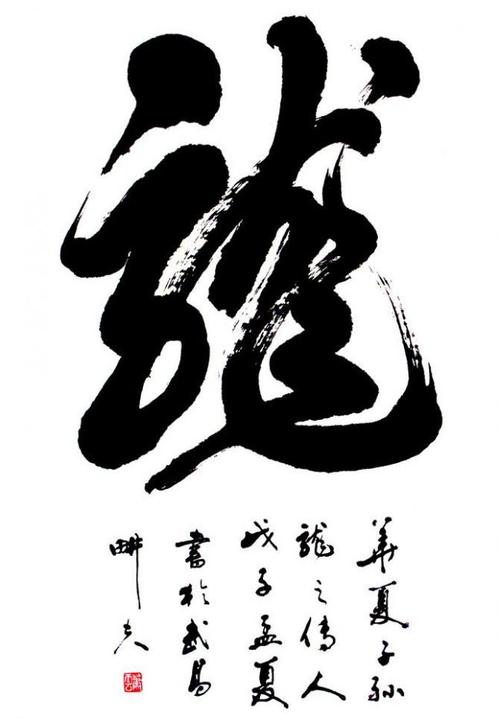 龍
華夏子孫
龍之傳人
戊子孟夏
書於武昌
畊夫